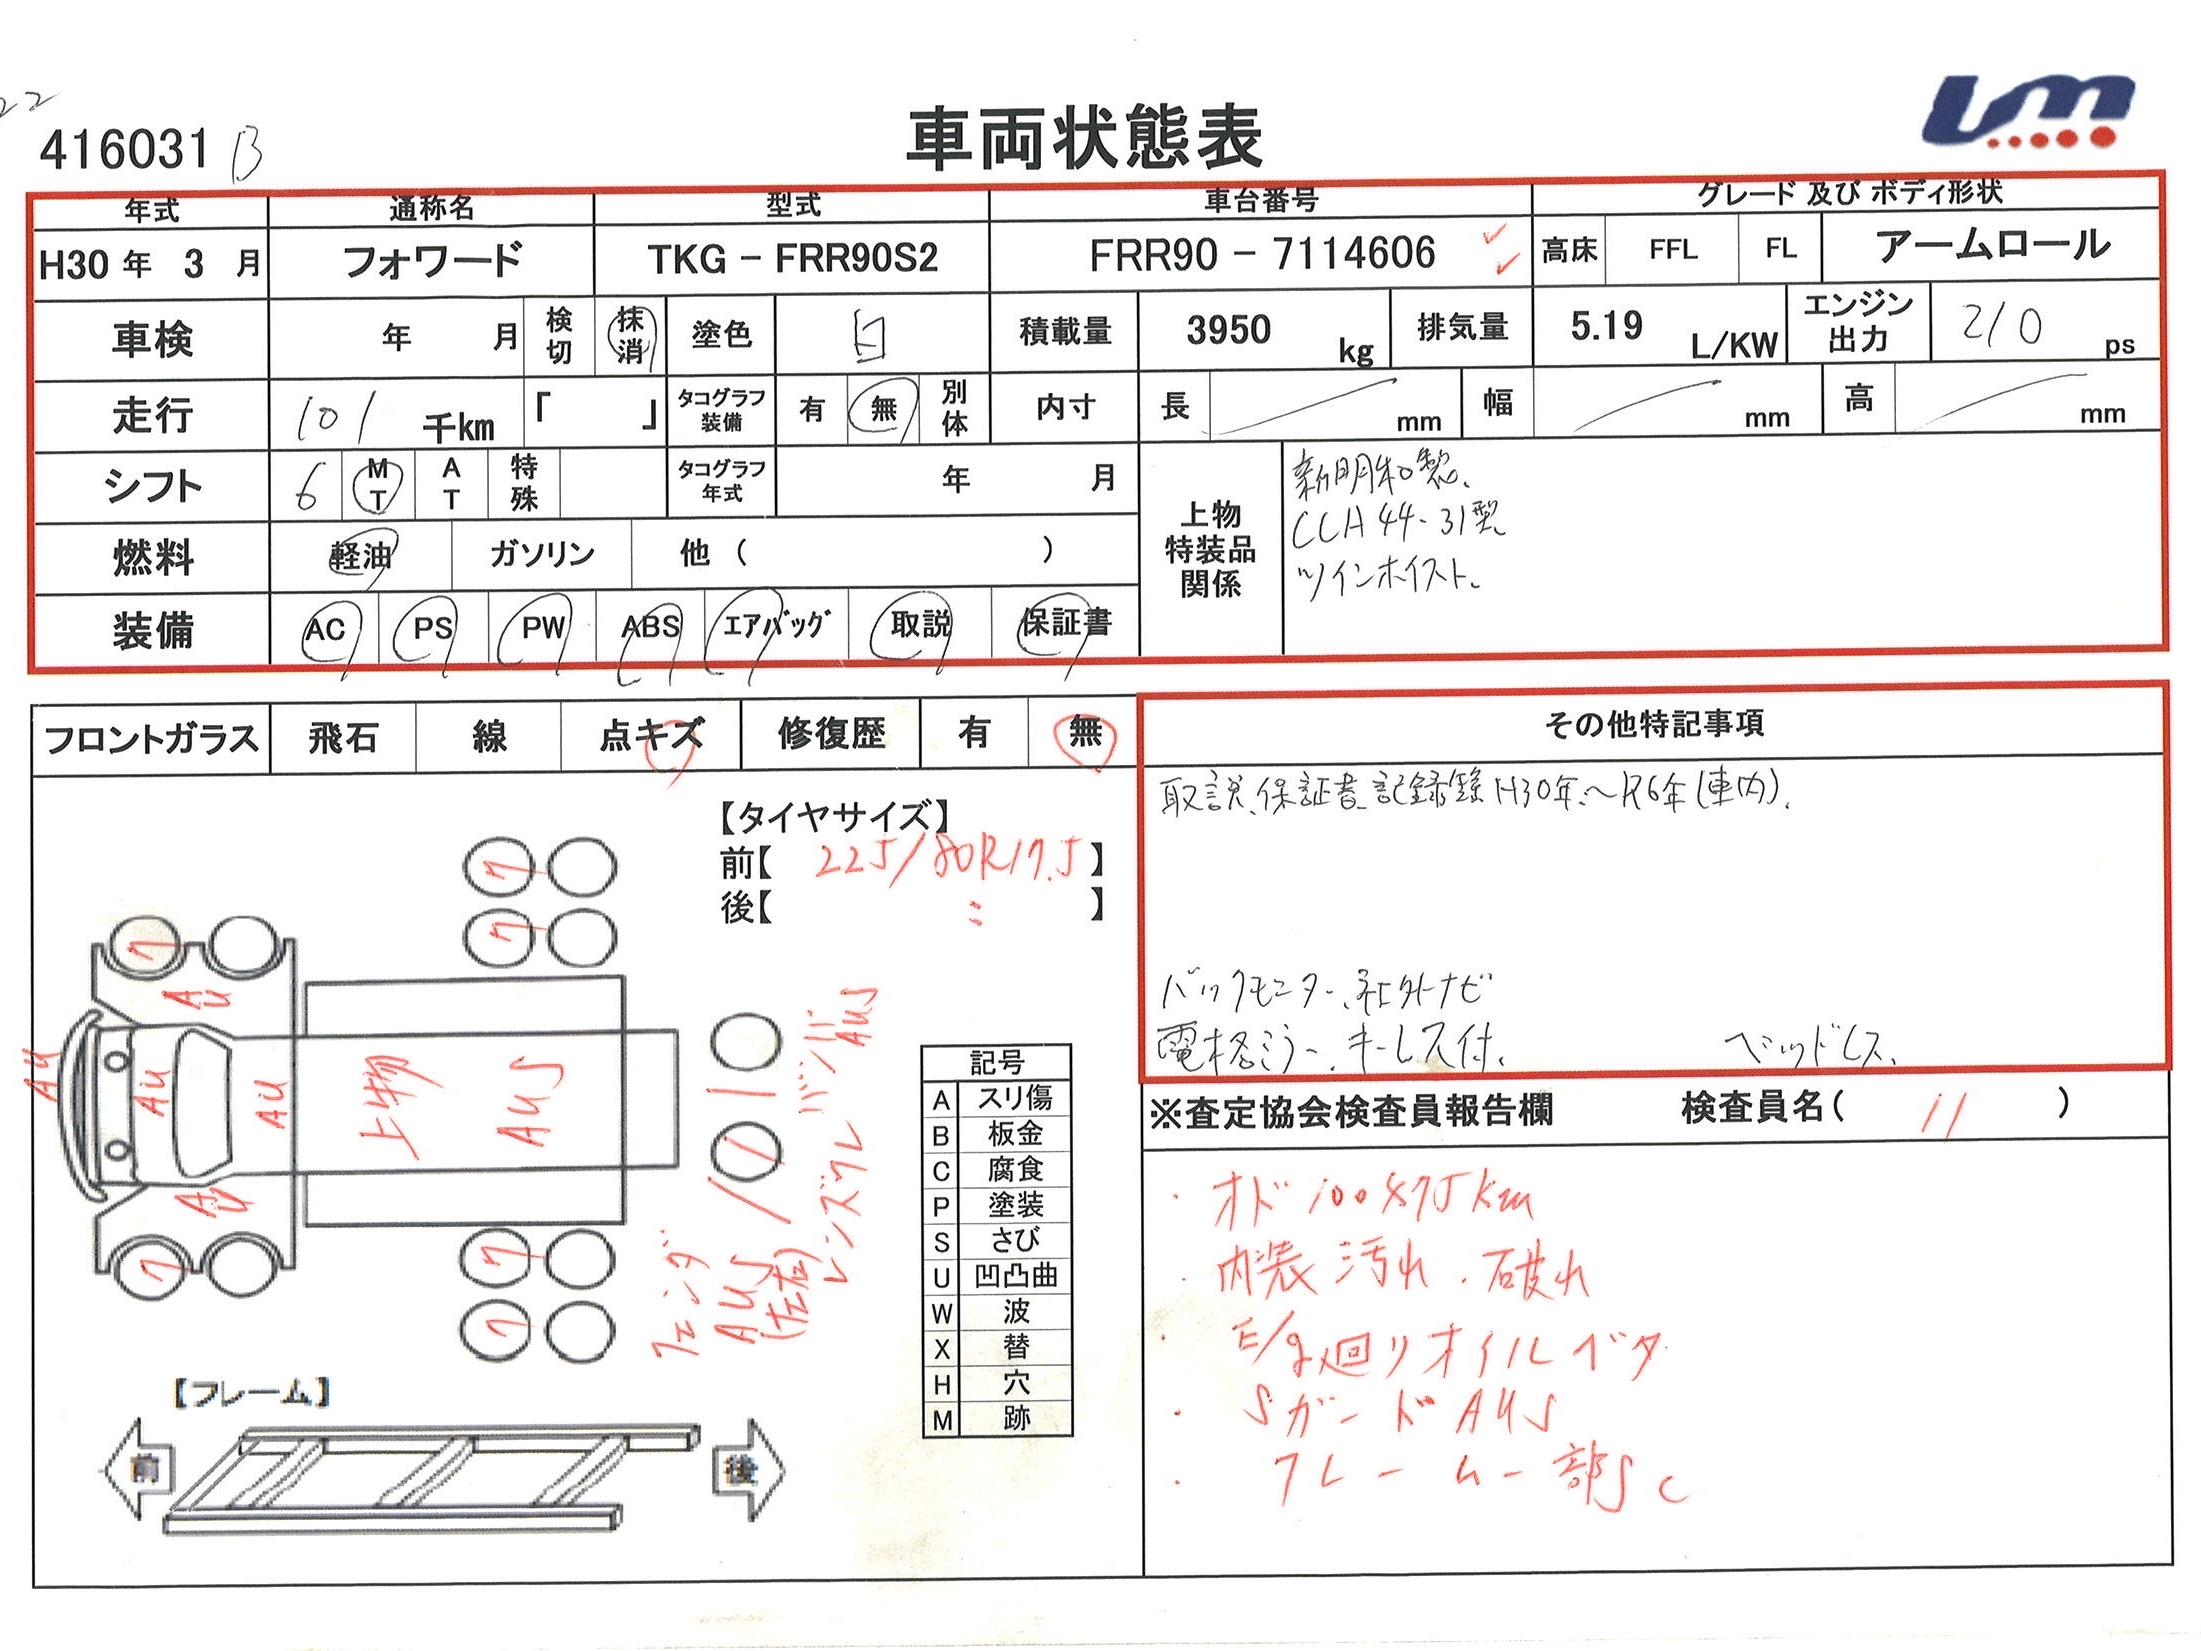 22
416031 B
車両状態表
UM
年式 通称名 型式 車台番号 グレード 及び ボディ形状
H30 年 3 月 フォワード TKG - FRR90S2 FRR90 - 7114606 高床 FFL FL アームロール
車検 年 月 検切 抹消 塗色 白 積載量 3950 kg 排気量 5.19 L/KW エンジン出力 210 ps
走行 101 千km 「 」 タコグラフ装備 有 無 別体 内寸 長 mm 幅 mm 高 mm
シフト 6 MT AT 特殊 タコグラフ年式 年 月
燃料 軽油 ガソリン 他 ( )
装備 AC PS PW ABS エアバッグ 取説 保証書
上物特装品関係
新明和製、
CCH44-31型
ツインホイスト、
フロントガラス 飛石 線 点キズ 修復歴 有 無
その他特記事項
取説、保証書、記録簿H30年~R6年(車内)、
バックモニター、社外ナビ
電格ミラー、キーレス付、 ベッドレス、
【タイヤサイズ】
前【 225/80R17.5 】
後【 〃 】
ワ ワ
ワ
AU
AU AU AU
上物 AUS
AU
ワ ワ
ワ
フェンダ
AUS
(左右)
レンズワレ
バンパ
AUS
記号
A スリ傷
B 板金
C 腐食
P 塗装
S さび
U 凹凸曲
W 波
X 替
H 穴
M 跡
【フレーム】
前 後
※査定協会検査員報告欄 検査員名( 11 )
・オド 100875km
・内装 汚れ・破れ
・E/g廻りオイルベタ
・SガードAUS
・フレーム一部SC